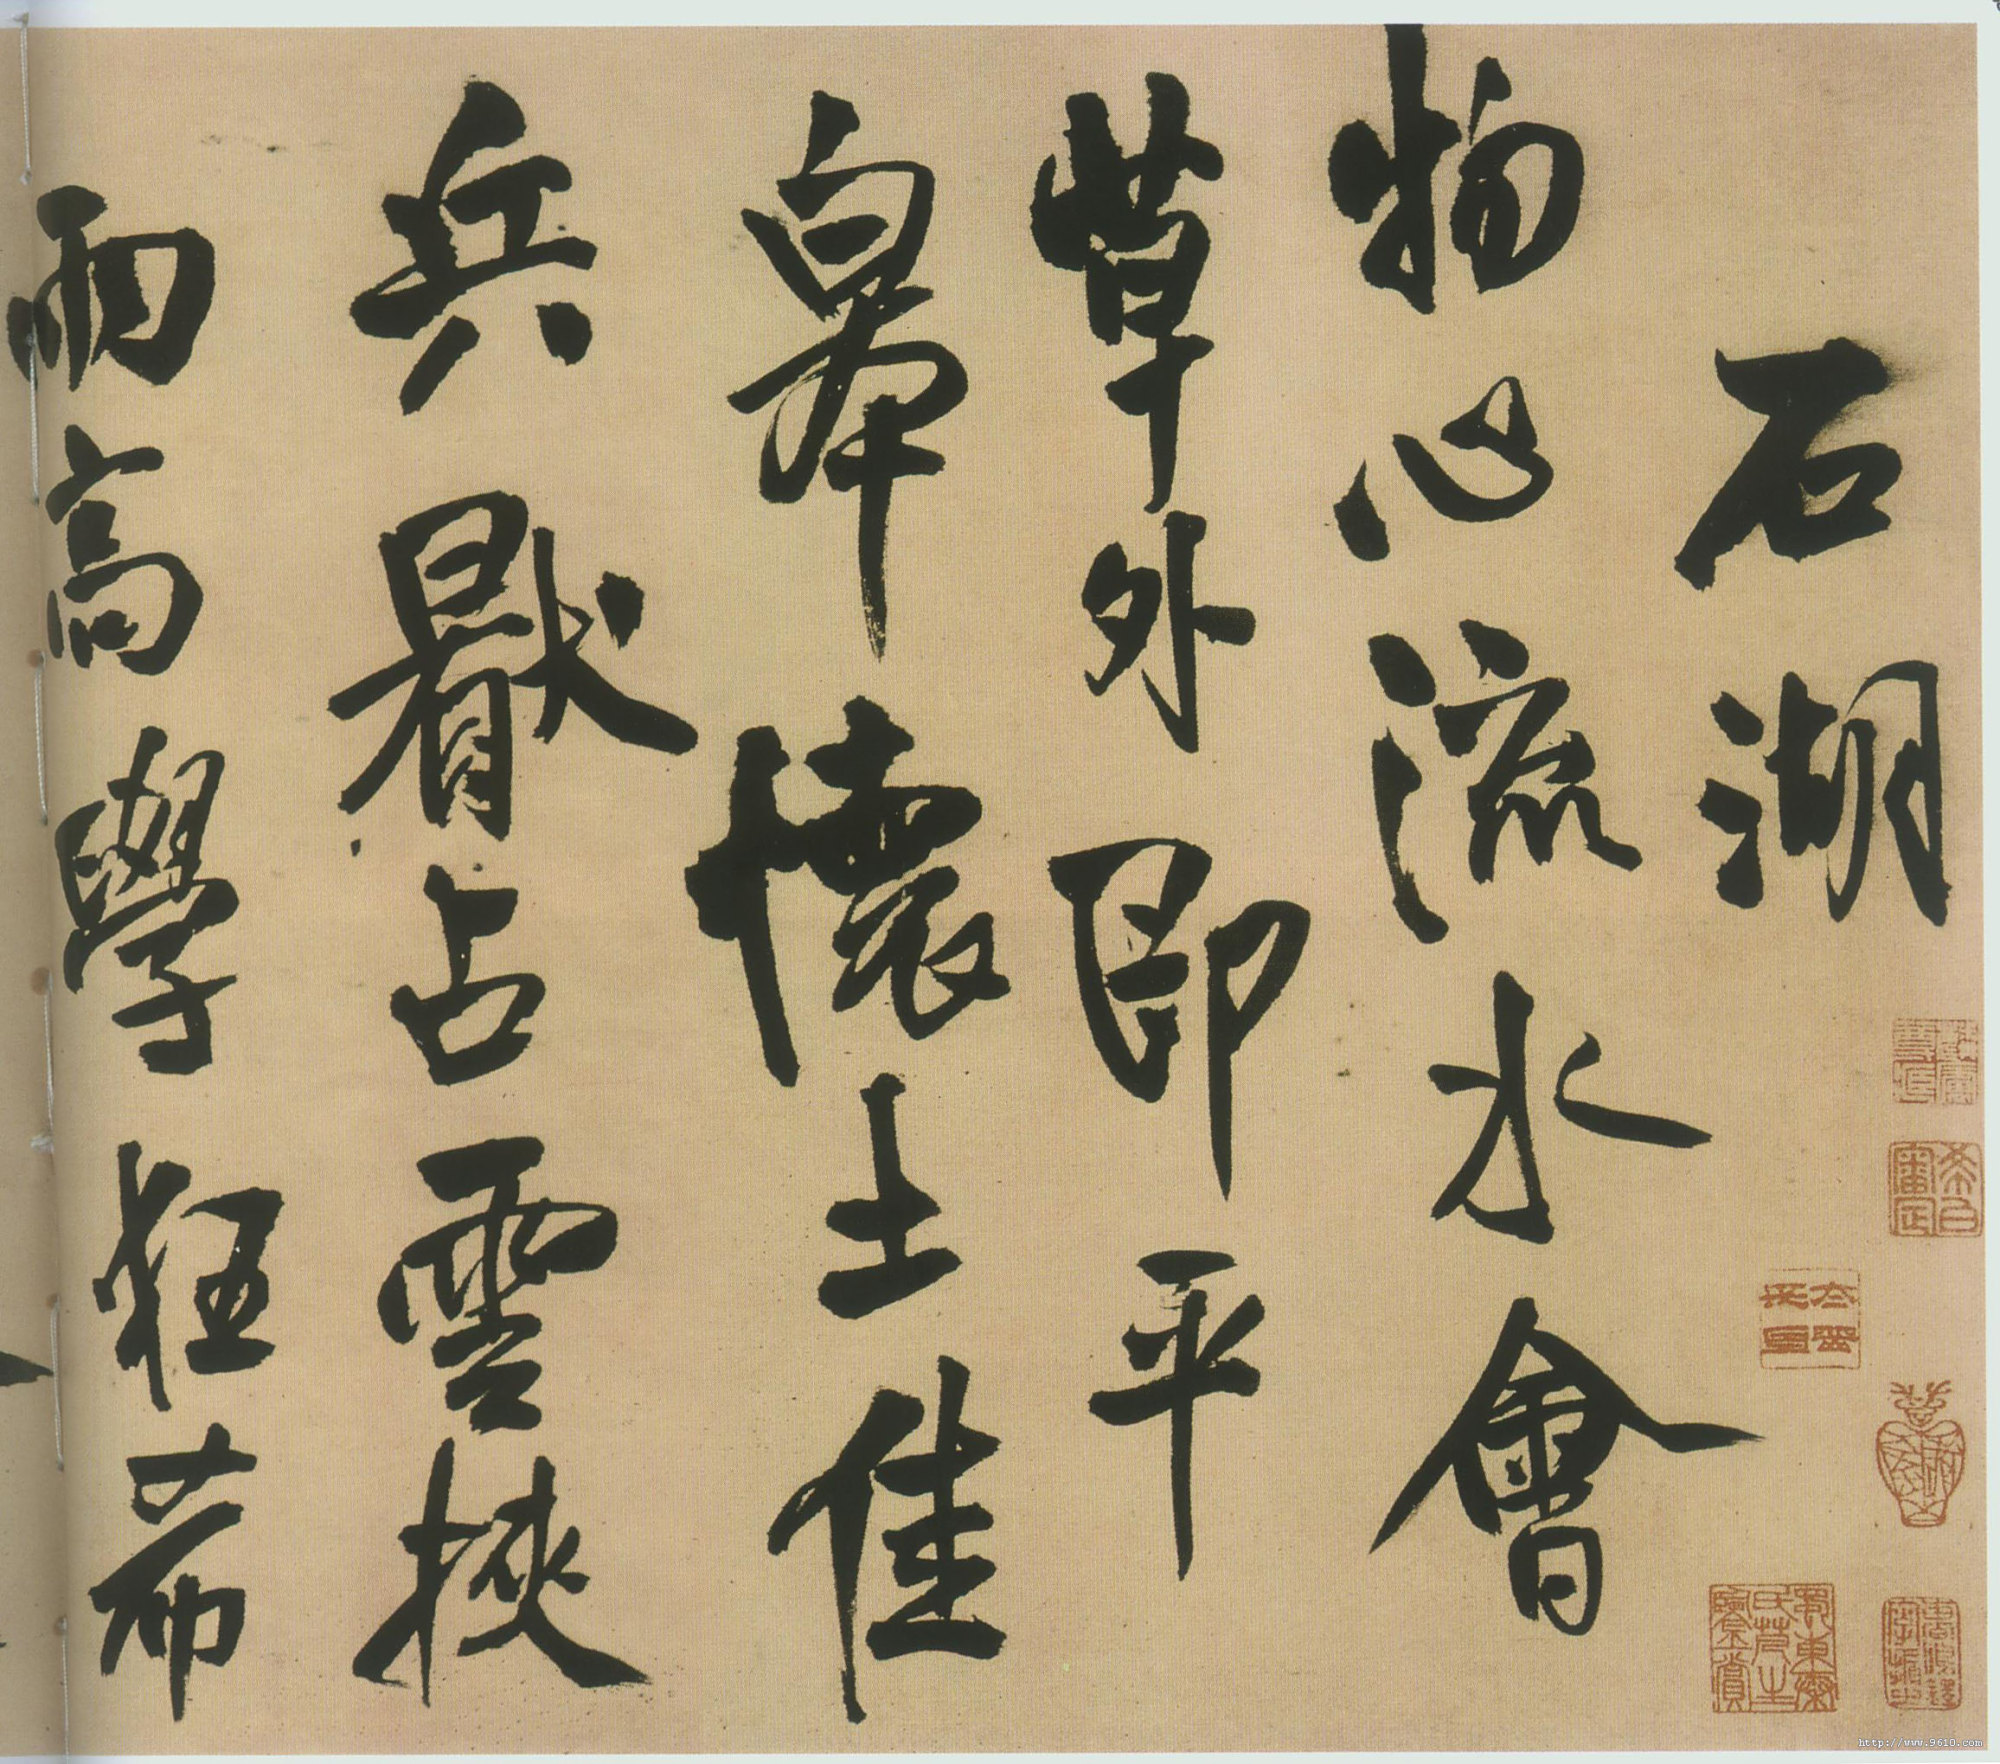 石湖
物心流水會
草外即平
皋懷土佳
兵厭占雲挾
雨高學狂希
http://www.9610.com